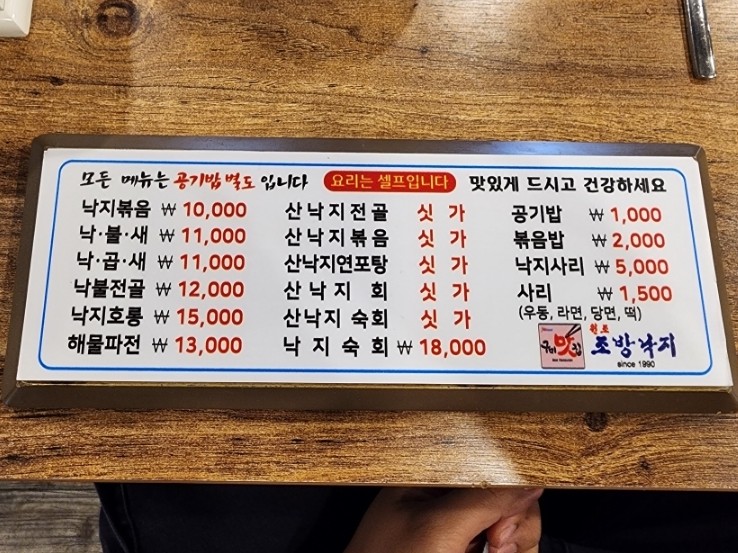 모든 메뉴는 공기밥 별도 입니다 요리는 셀프입니다 맛있게 드시고 건강하세요
낙지볶음 ₩ 10,000
낙·불·새 ₩ 11,000
낙·곱·새 ₩ 11,000
낙불전골 ₩ 12,000
낙지호롱 ₩ 15,000
해물파전 ₩ 13,000
산낙지전골 싯가
산낙지볶음 싯가
산낙지연포탕 싯가
산낙지회 싯가
산낙지숙회 싯가
낙지숙회 ₩ 18,000
공기밥 ₩ 1,000
볶음밥 ₩ 2,000
낙지사리 ₩ 5,000
사리 ₩ 1,500
(우동, 라면, 당면, 떡)
구미맛집
원조
조방낙지
since 1990